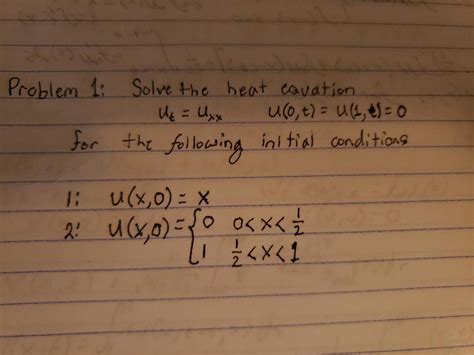 Problem 1: Solve the heat eavation
u_t = u_xx   u(0,t) = u(1,t) = 0
for the following initial conditions
1: u(x,0) = x
2: u(x,0) = { 0   0<x<1/2
1   1/2<x<1